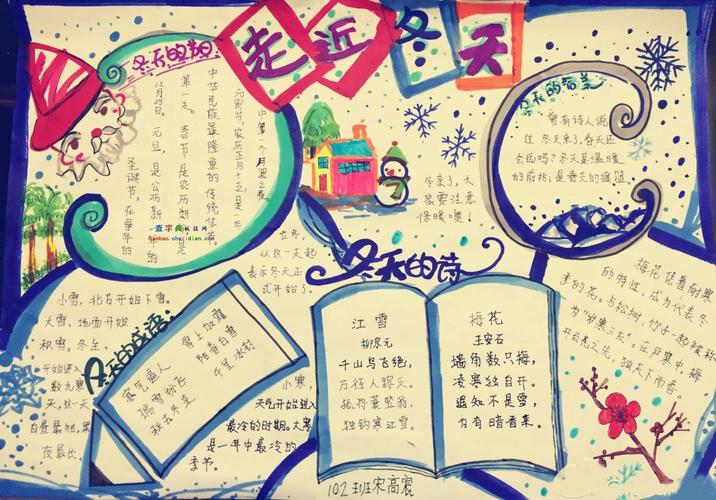 走近冬天
冬天的节日
圣诞节，在每年的
12月25日。元旦，是公历新年的
第一天。春节是农历
中华民族最隆重的传统佳节。
元宵节，农历正月十五是一年
中第一个月圆之夜。
查字典板报网
banbao.chazidian.com
冬天的赞美
曾有诗人说
过 冬天来了，春天还
会远吗？冬天是温暖
的前兆；是春天的摇篮
冬来了，大
家要注意
保暖噢！
立冬，
从这一天起
表示冬天正
式开始了。
冬天的诗
小雪，北方开始下雪。
大雪，地面开始
积雪。冬至，
开始进入
数九寒
天，这一天
白昼最短，黑
夜最长。
冬天的成语：
雪上加霜
阳春白雪
千里冰封
寒气逼人
瑞雪纷飞
秋去冬来
小寒，
天气开始进入
最冷的时期。大寒
是一年中最冷的
季节。
江雪
柳宗元
千山鸟飞绝，
万径人踪灭。
孤舟蓑笠翁，
独钓寒江雪。
梅花
王安石
墙角数只梅，
凌寒独自开。
遥知不是雪，
为有暗香来。
梅花凭着耐寒
的特性，成为代表冬
季的花。与松树、竹子一起被称
为“岁寒三友”。在严寒中，梅
开百花之先，独天下而春。
102班宋高宸